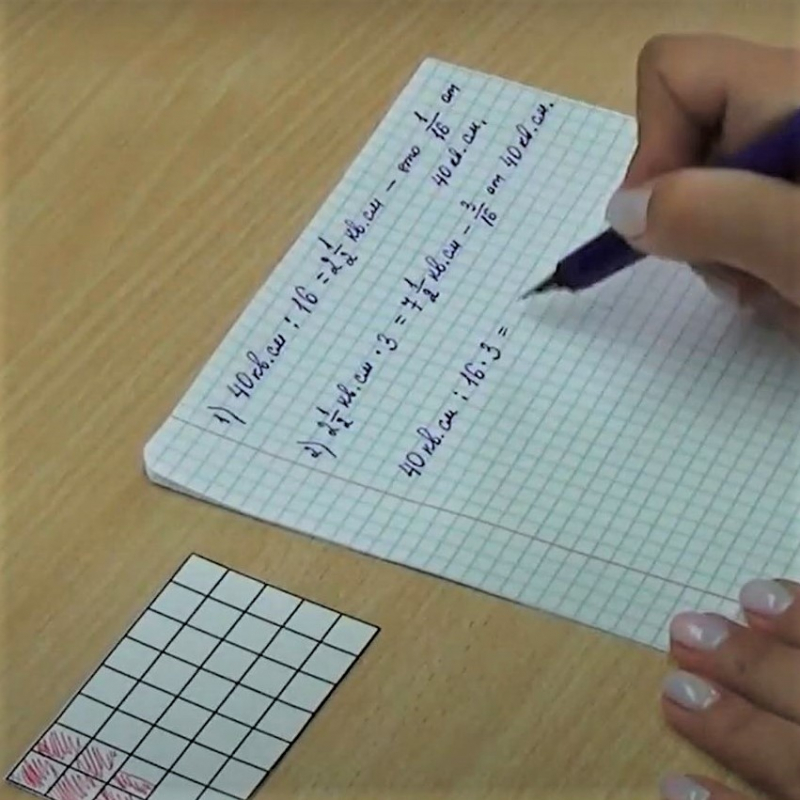 1) 40 кв.см : 16 = 2 1/2 кв.см – это 1/16 от
40 кв. см.
2) 2 1/2 кв.см · 3 = 7 1/2 кв.см – 3/16 от 40 кв.см.
40 кв.см : 16 · 3 =